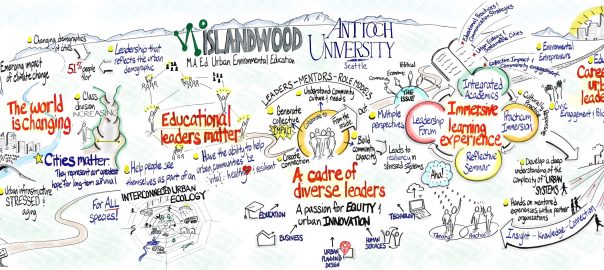 Changing demographics
of cities
Emerging impact
of climate change
51% people
of color
Leadership that
reflects the
urban demographic
ISLANDWOOD
M.A. Ed. Urban Environmental Education
ANTIOCH
UNIVERSITY
Seattle
The world
is changing
Class
division
INCREASING
Cities matter:
They represent our greatest
hope for long-term survival
Urban infrastructure
STRESSED +
aging
For ALL
species!
RAFA
RAFA
RAFA
RAFA
Educational
leaders matter
Help people see
themselves as part of an
INTERCONNECTED URBAN
ECOLOGY
Have the ability to help
urban communities be
vital, healthy + resilient
LEADERS-MENTORS-ROLE MODELS
Understand community
culture + needs
Generate
collective
IMPACT
Create
connection
Community
From the inside
Out
Build
community
capacity
A cadre of
diverse leaders
A passion for EQUITY +
urban INNOVATION
EDUCATION
BUSINESS
URBAN
PLANNING +
DESIGN
HUMAN
SERVICES
TECHNOLOGY
Political
Economic
THE
ISSUE
Multiple
perspectives
Leads to
resiliency in
stressed systems
Aha!
Leadership
Forum
Integrated
Academics
Immersive
learning
experience
Practicum
Immersion
Reflective
Seminar
Theory
Practice
Collective Impact +
Community engagement
Environmental
Entrepreneurs
Civic
Engagement +
Develop a deep
understanding of the
complexity of URBAN
SYSTEMS
Hands on mentored
experiences within partner
organizations
Insight - Knowledge - Connection